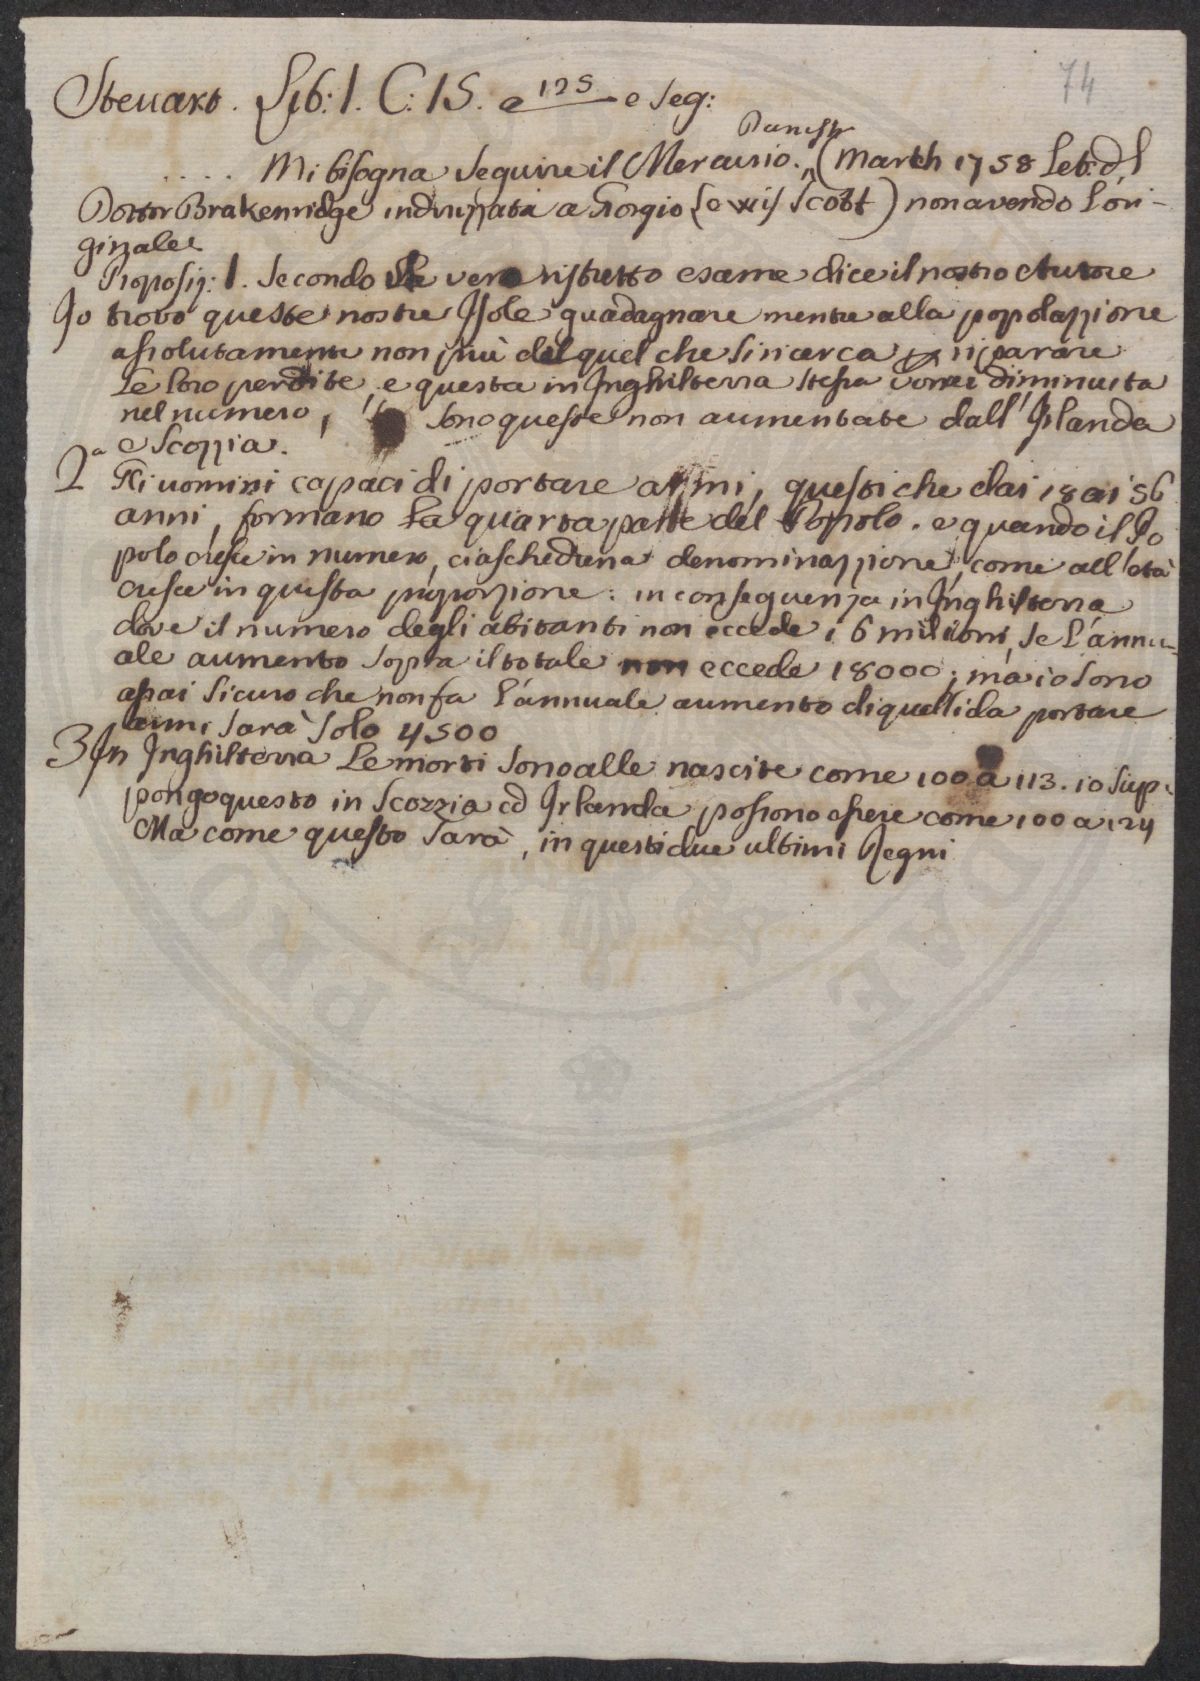 74
Steuart. Lib: 1. C: 15. e 125 e seg:
Danish
.... Mi bisogna seguire il Mercurio. (March 1758 Let: d.l
Dottor Brakenridge indirizzata a Giorgio Lewis Scott) non avendo l'ori-
ginale
Proposiz: 1. Secondo vero ristretto esame dice il nostro Autore
Io trovo queste nostre Isole guadagnare mentre alla popolazzione
assolutamente non più del quel che si ricerca p riparare
le loro perdite, e questa in Inghilterra stessa diminuita
nel numero, sono queste non aumentate dall'Irlanda
e Scozzia.
2a Gli uomini capaci di portare armi, questi che dai 18 ai 56
anni, formano la quarta parte del Popolo. e quando il Po
polo cresce in numero, ciascheduna denominazzione, come all'età
cresce in questa proporzione: in conseguenza in Inghilterra
dove il numero degli abitanti non eccede i 6 milioni, se l'annu-
ale aumento sopra il totale non eccede 18000; ma io sono
assai sicuro che non fa l'annuale aumento di quelli da portare
armi sarà solo 4500
3 In Inghilterra le morti sono alle nascite come 100 a 113. io Sup-
pongo questo in Scozzia ed Irlanda possono essere come 100 a 124
Ma come questo sarà, in questi due ultimi Regni